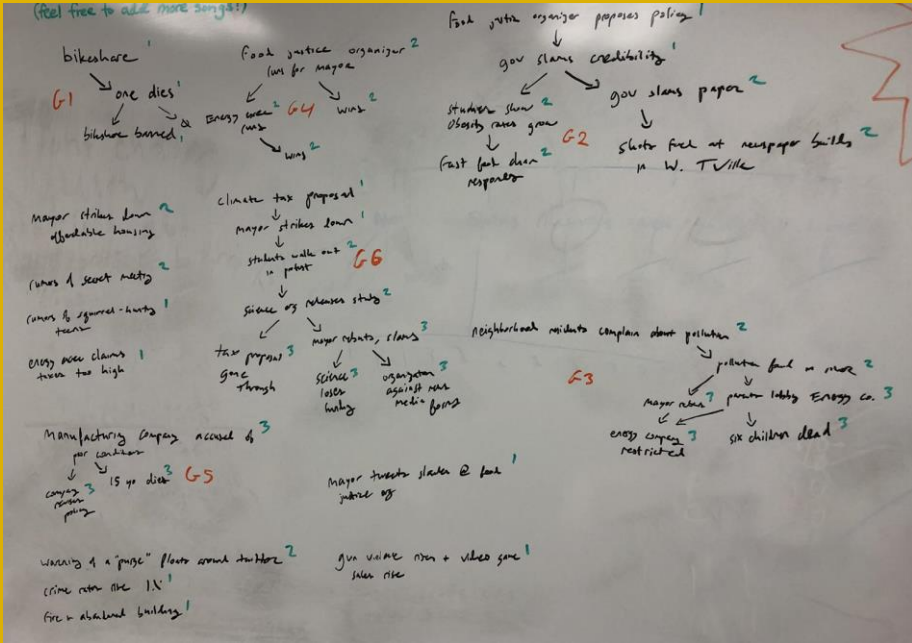 (feel free to add more songs!)
bikeshare 1
one dies 1
G1
bikeshare banned 1
Food justice organizer 2
runs for mayor
Energy exec 2
runs
G4
wins 2
wins 2
Food justice organizer proposes policy 1
gov slams credibility 1
studies show 2
obesity rates grow
G2
fast food chain 2
responds
gov slams paper 2
shots fired at newspaper building 2
in W. TVille
mayor strikes down 2
affordable housing
rumors of secret meeting 2
rumors of squirrel-hunting 1
teens
energy exec claims 1
taxes too high
climate tax proposal 1
mayor strikes down 1
students walk out 2
in protest
G6
science org releases study 2
tax proposal 3
gone
through
mayor rebuts, slams 3
science 3
loses
funding
organization 3
against news
media forms
neighborhood residents complain about pollution 2
pollution found in river 2
G3
mayor 3
parents lobby Energy co. 3
energy company 3
restricted
six children dead 3
Manufacturing company accused of 3
poor conditions
company 3
policy
15 yo dies 3
G5
mayor tweets slander @ food 1
justice org
warning of a "purge" floats around twitter 2
crime rates rise 1% 1
fire in abandoned building 1
gun violence rises + video game 1
sales rise